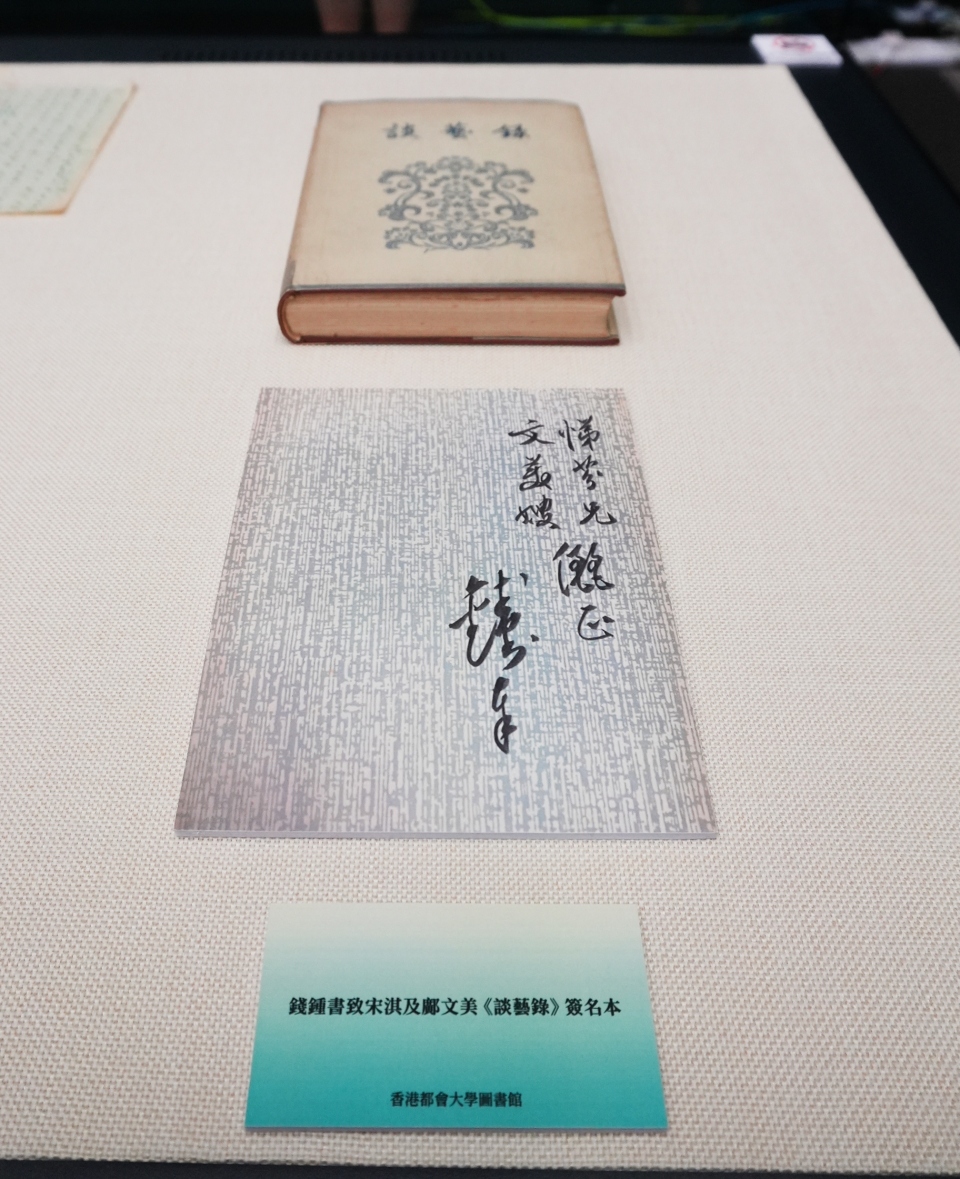 談藝錄
悌芬兄
文美嫂
儷正
奉
錢鍾書致宋淇及鄺文美《談藝錄》簽名本
香港都會大學圖書館